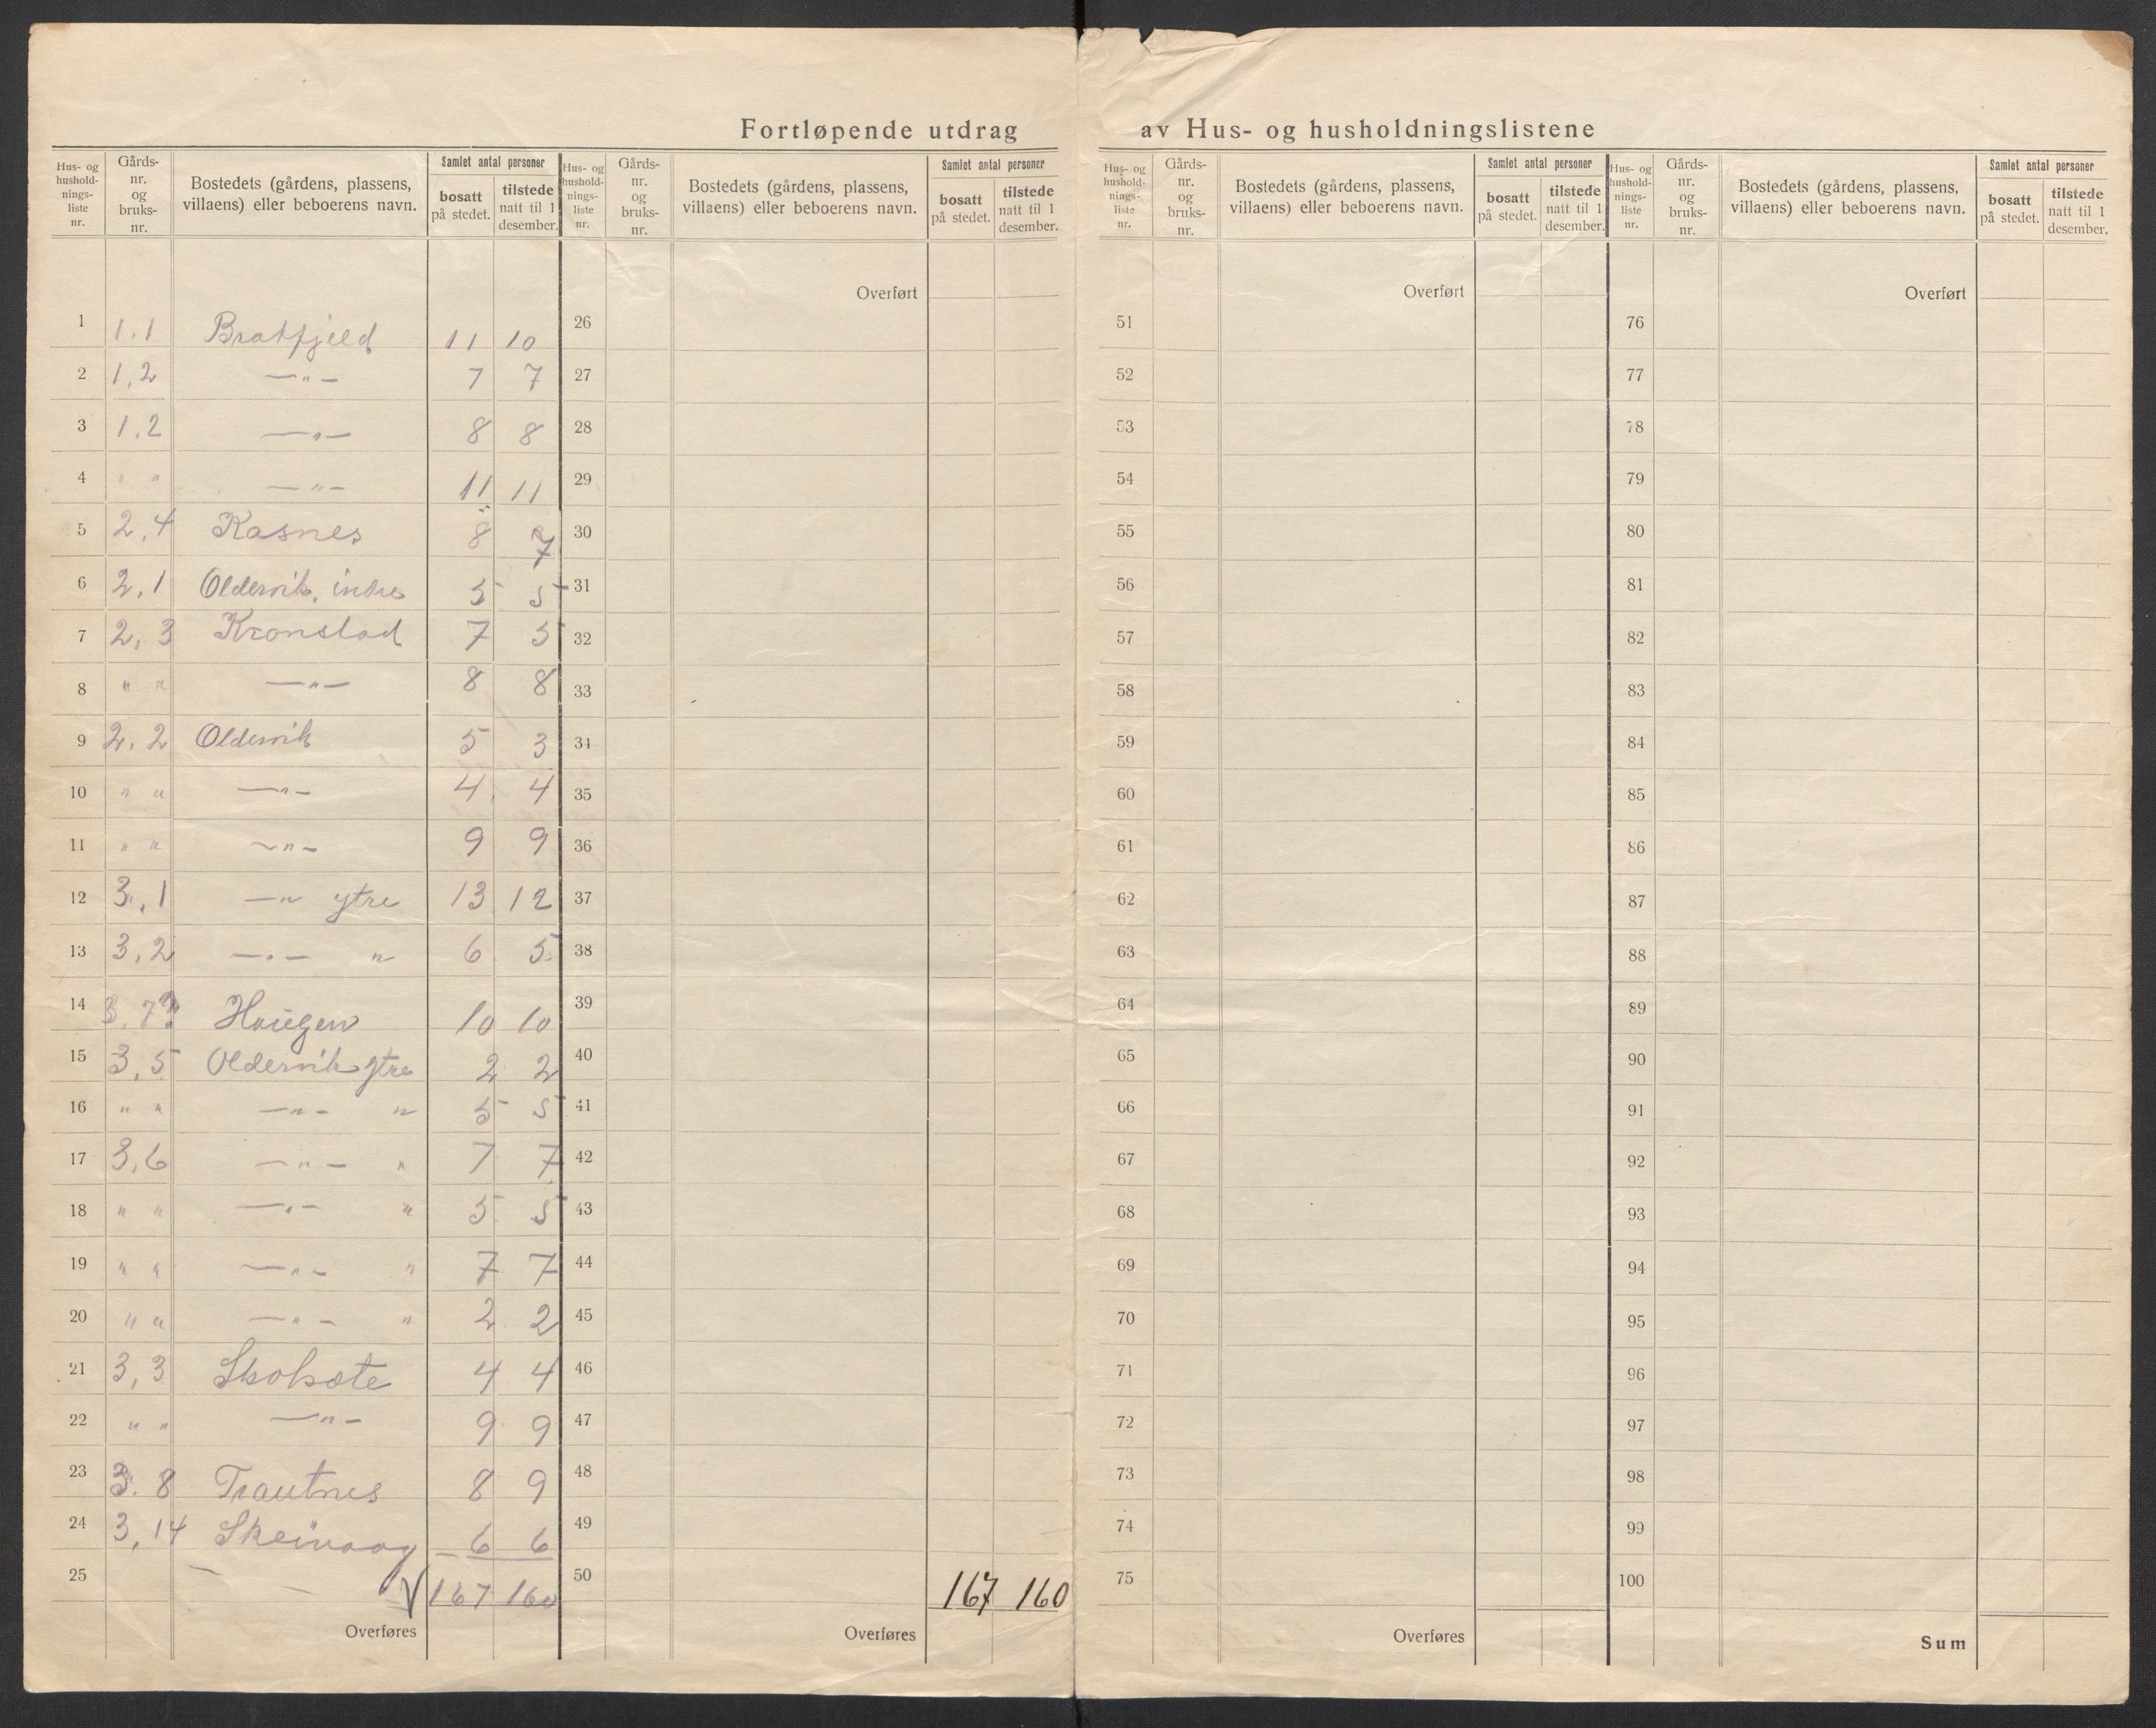 Fortløpende utdrag av Hus- og husholdningslistene
Hus- og hushold-nings-liste nr. | Gårds-nr. og bruks-nr. | Bostedets (gårdens, plassens, villaens) eller beboerens navn. | Samlet antal personer | bosatt på stedet. | tilstede natt til 1 desember.
1 1.1 Bratfjeld 11 10
2 1,2 —"— 7 7
3 1,2 —"— 8 8
4 " " —"— 11 11
5 2,4 Kasnes 8 7
6 2,1 Oldervik, indre 5 5
7 2,3 Kronstad 7 5
8 " " —"— 8 8
9 2,2 Oldervik 5 3
10 " " —"— 4 4
11 " " —"— 9 9
12 3,1 —"— ytre 13 12
13 3,2 —"— " 6 5
14 3,7? Haugen 10 10
15 3,5 Oldervik ytre 2 2
16 " " —"— " 5 5
17 3,6 —"— " 7 7
18 " " —"— " 5 5
19 " " —"— " 7 7
20 " " —"— " 2 2
21 3,3 4 4
22 " " —"— 9 9
23 3.8 Trautnes 8 9
24 3,14 Skeivaag 6 6
25 V 167 160
Overføres
Hus- og hushold-nings-liste nr. | Gårds-nr. og bruks-nr. | Bostedets (gårdens, plassens, villaens) eller beboerens navn. | Samlet antal personer | bosatt på stedet. | tilstede natt til 1 desember.
Overført
26
27
28
29
30
31
32
33
34
35
36
37
38
39
40
41
42
43
44
45
46
47
48
49
50 167 160
Overføres
Hus- og hushold-nings-liste nr. | Gårds-nr. og bruks-nr. | Bostedets (gårdens, plassens, villaens) eller beboerens navn. | Samlet antal personer | bosatt på stedet. | tilstede natt til 1 desember.
Overført
51
52
53
54
55
56
57
58
59
60
61
62
63
64
65
66
67
68
69
70
71
72
73
74
75
Overføres
Hus- og hushold-nings-liste nr. | Gårds-nr. og bruks-nr. | Bostedets (gårdens, plassens, villaens) eller beboerens navn. | Samlet antal personer | bosatt på stedet. | tilstede natt til 1 desember.
Overført
76
77
78
79
80
81
82
83
84
85
86
87
88
89
90
91
92
93
94
95
96
97
98
99
100
Sum